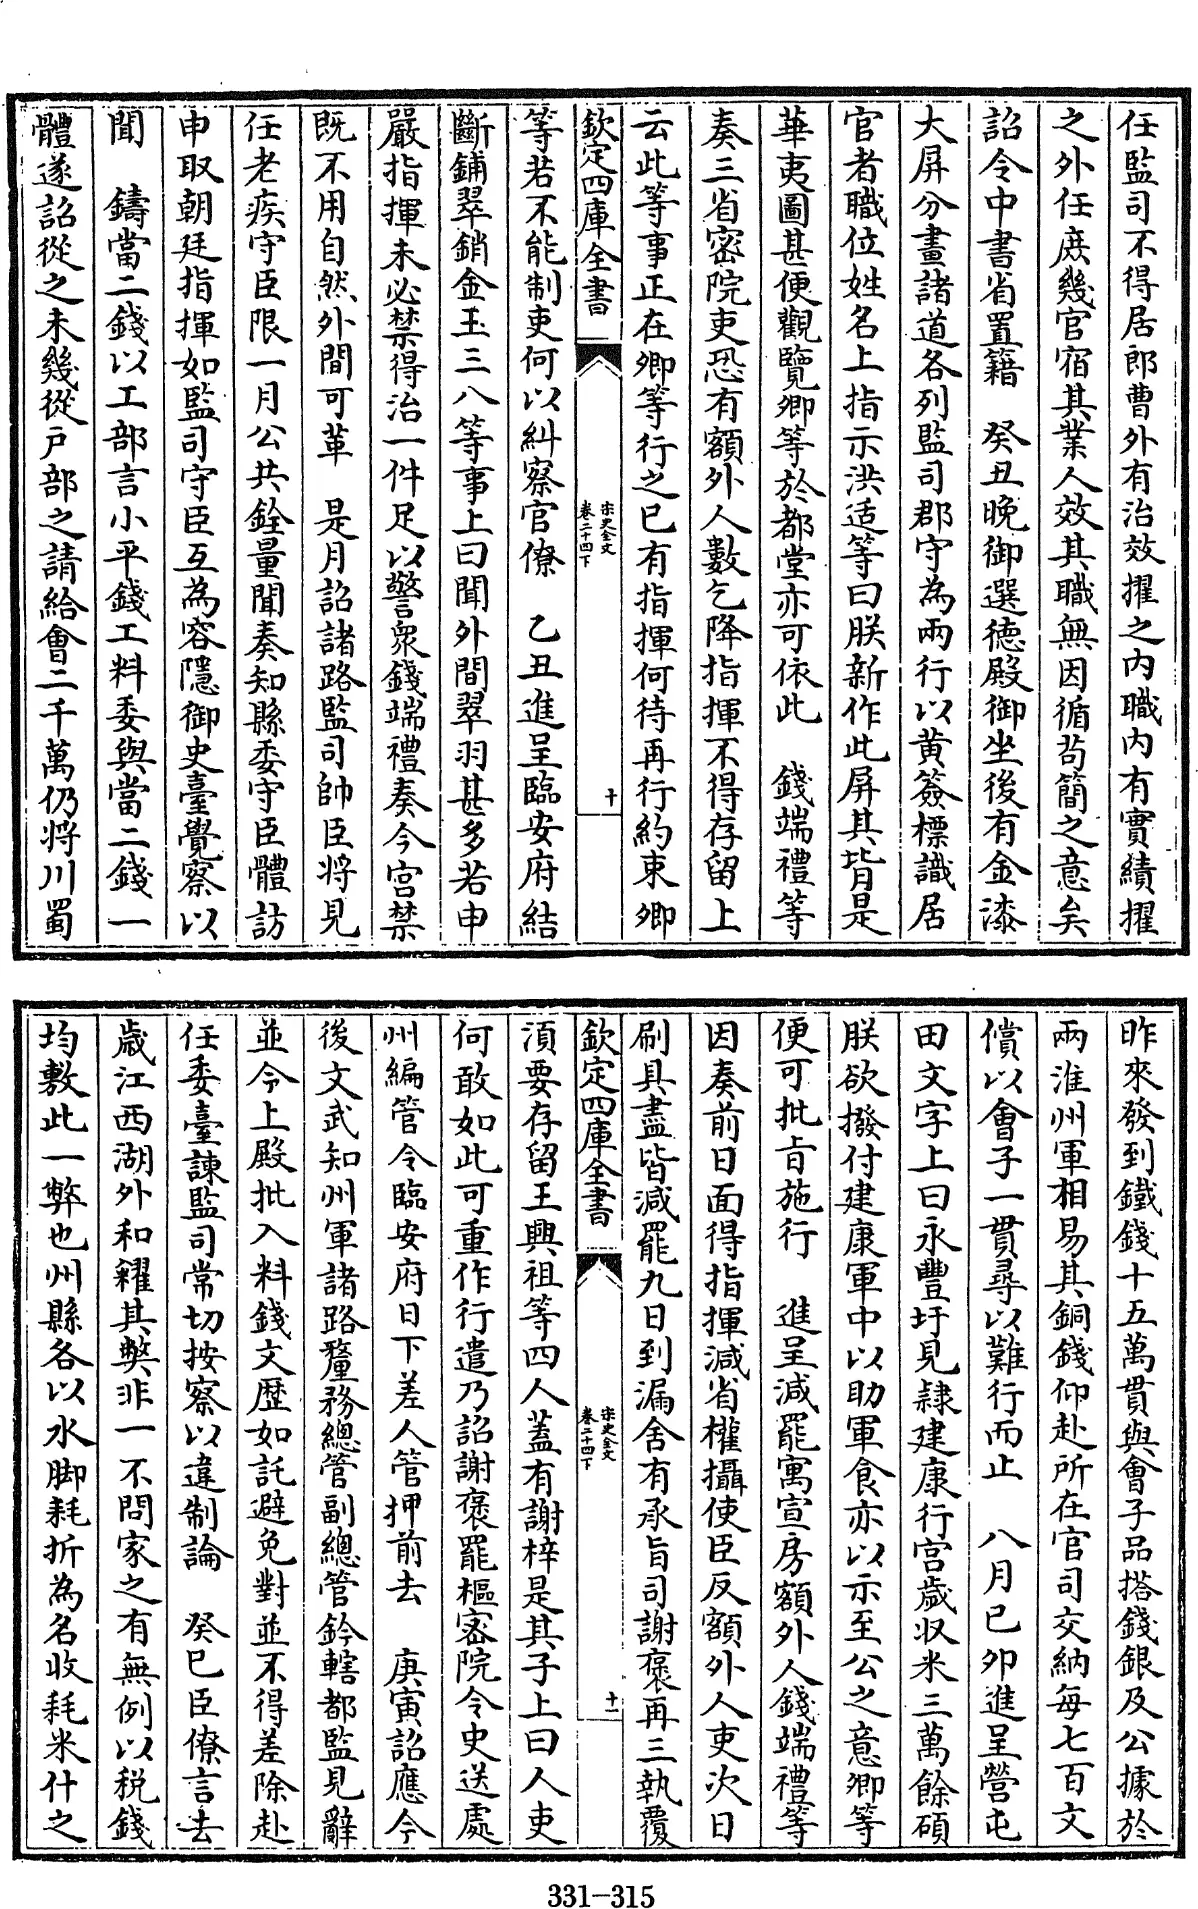 任監司不得居郎曹外有治效擢之内職内有實績擢
之外任庶幾官宿其業人效其職無因循茍簡之意矣
詔令中書省置籍　癸丑晚御選德殿御坐後有金漆
大屏分畫諸道各列監司郡守為兩行以黄簽標識居
官者職位姓名上指示洪适等曰朕新作此屏其背是
華夷圖甚便觀覽卿等於都堂亦可依此　錢端禮等
奏三省密院吏恐有額外人數乞降指揮不得存留上
云此等事正在卿等行之已有指揮何待再行約束卿
欽定四庫全書
宋史全文
卷二十四下
十
等若不能制吏何以糾察官僚　乙丑進呈臨安府結
斷鋪翠銷金王三八等事上曰聞外間翠羽甚多若申
嚴指揮未必禁得治一件足以警衆錢端禮奏今宫禁
既不用自然外間可革　是月詔諸路監司帥臣將見
任老疾守臣限一月公共銓量聞奏知縣委守臣體訪
申取朝廷指揮如監司守臣互為容隱御史臺覺察以
聞　鑄當二錢以工部言小平錢工料委與當二錢一
體遂詔從之未幾從户部之請給會二千萬仍將川蜀
昨來發到鐵錢十五萬貫與會子品搭錢銀及公據於
兩淮州軍相易其銅錢仰赴所在官司交納每七百文
償以會子一貫尋以難行而止　八月己卯進呈營屯
田文字上曰永豐圩見隷建康行宫歲収米三萬餘碩
朕欲撥付建康軍中以助軍食亦以示至公之意卿等
便可批旨施行　進呈減罷寓宣房額外人錢端禮等
因奏前日面得指揮減省權攝使臣反額外人吏次日
刷具盡皆減罷九日到漏舍有承旨司謝褒再三執覆
欽定四庫全書
宋史全文
卷二十四下
十一
湏要存留王興祖等四人蓋有謝梓是其子上曰人吏
何敢如此可重作行遣乃詔謝褒罷樞密院令史送處
州編管令臨安府日下差人管押前去　庚寅詔應今
後文武知州軍諸路釐務總管副總管鈐轄都監見辭
並令上殿批入料錢文歴如託避免對並不得差除赴
任委臺諫監司常切按察以違制論　癸巳臣僚言去
歲江西湖外和糴其弊非一不問家之有無例以税錢
均敷此一弊也州縣各以水脚耗折為名收耗米什之
331-315